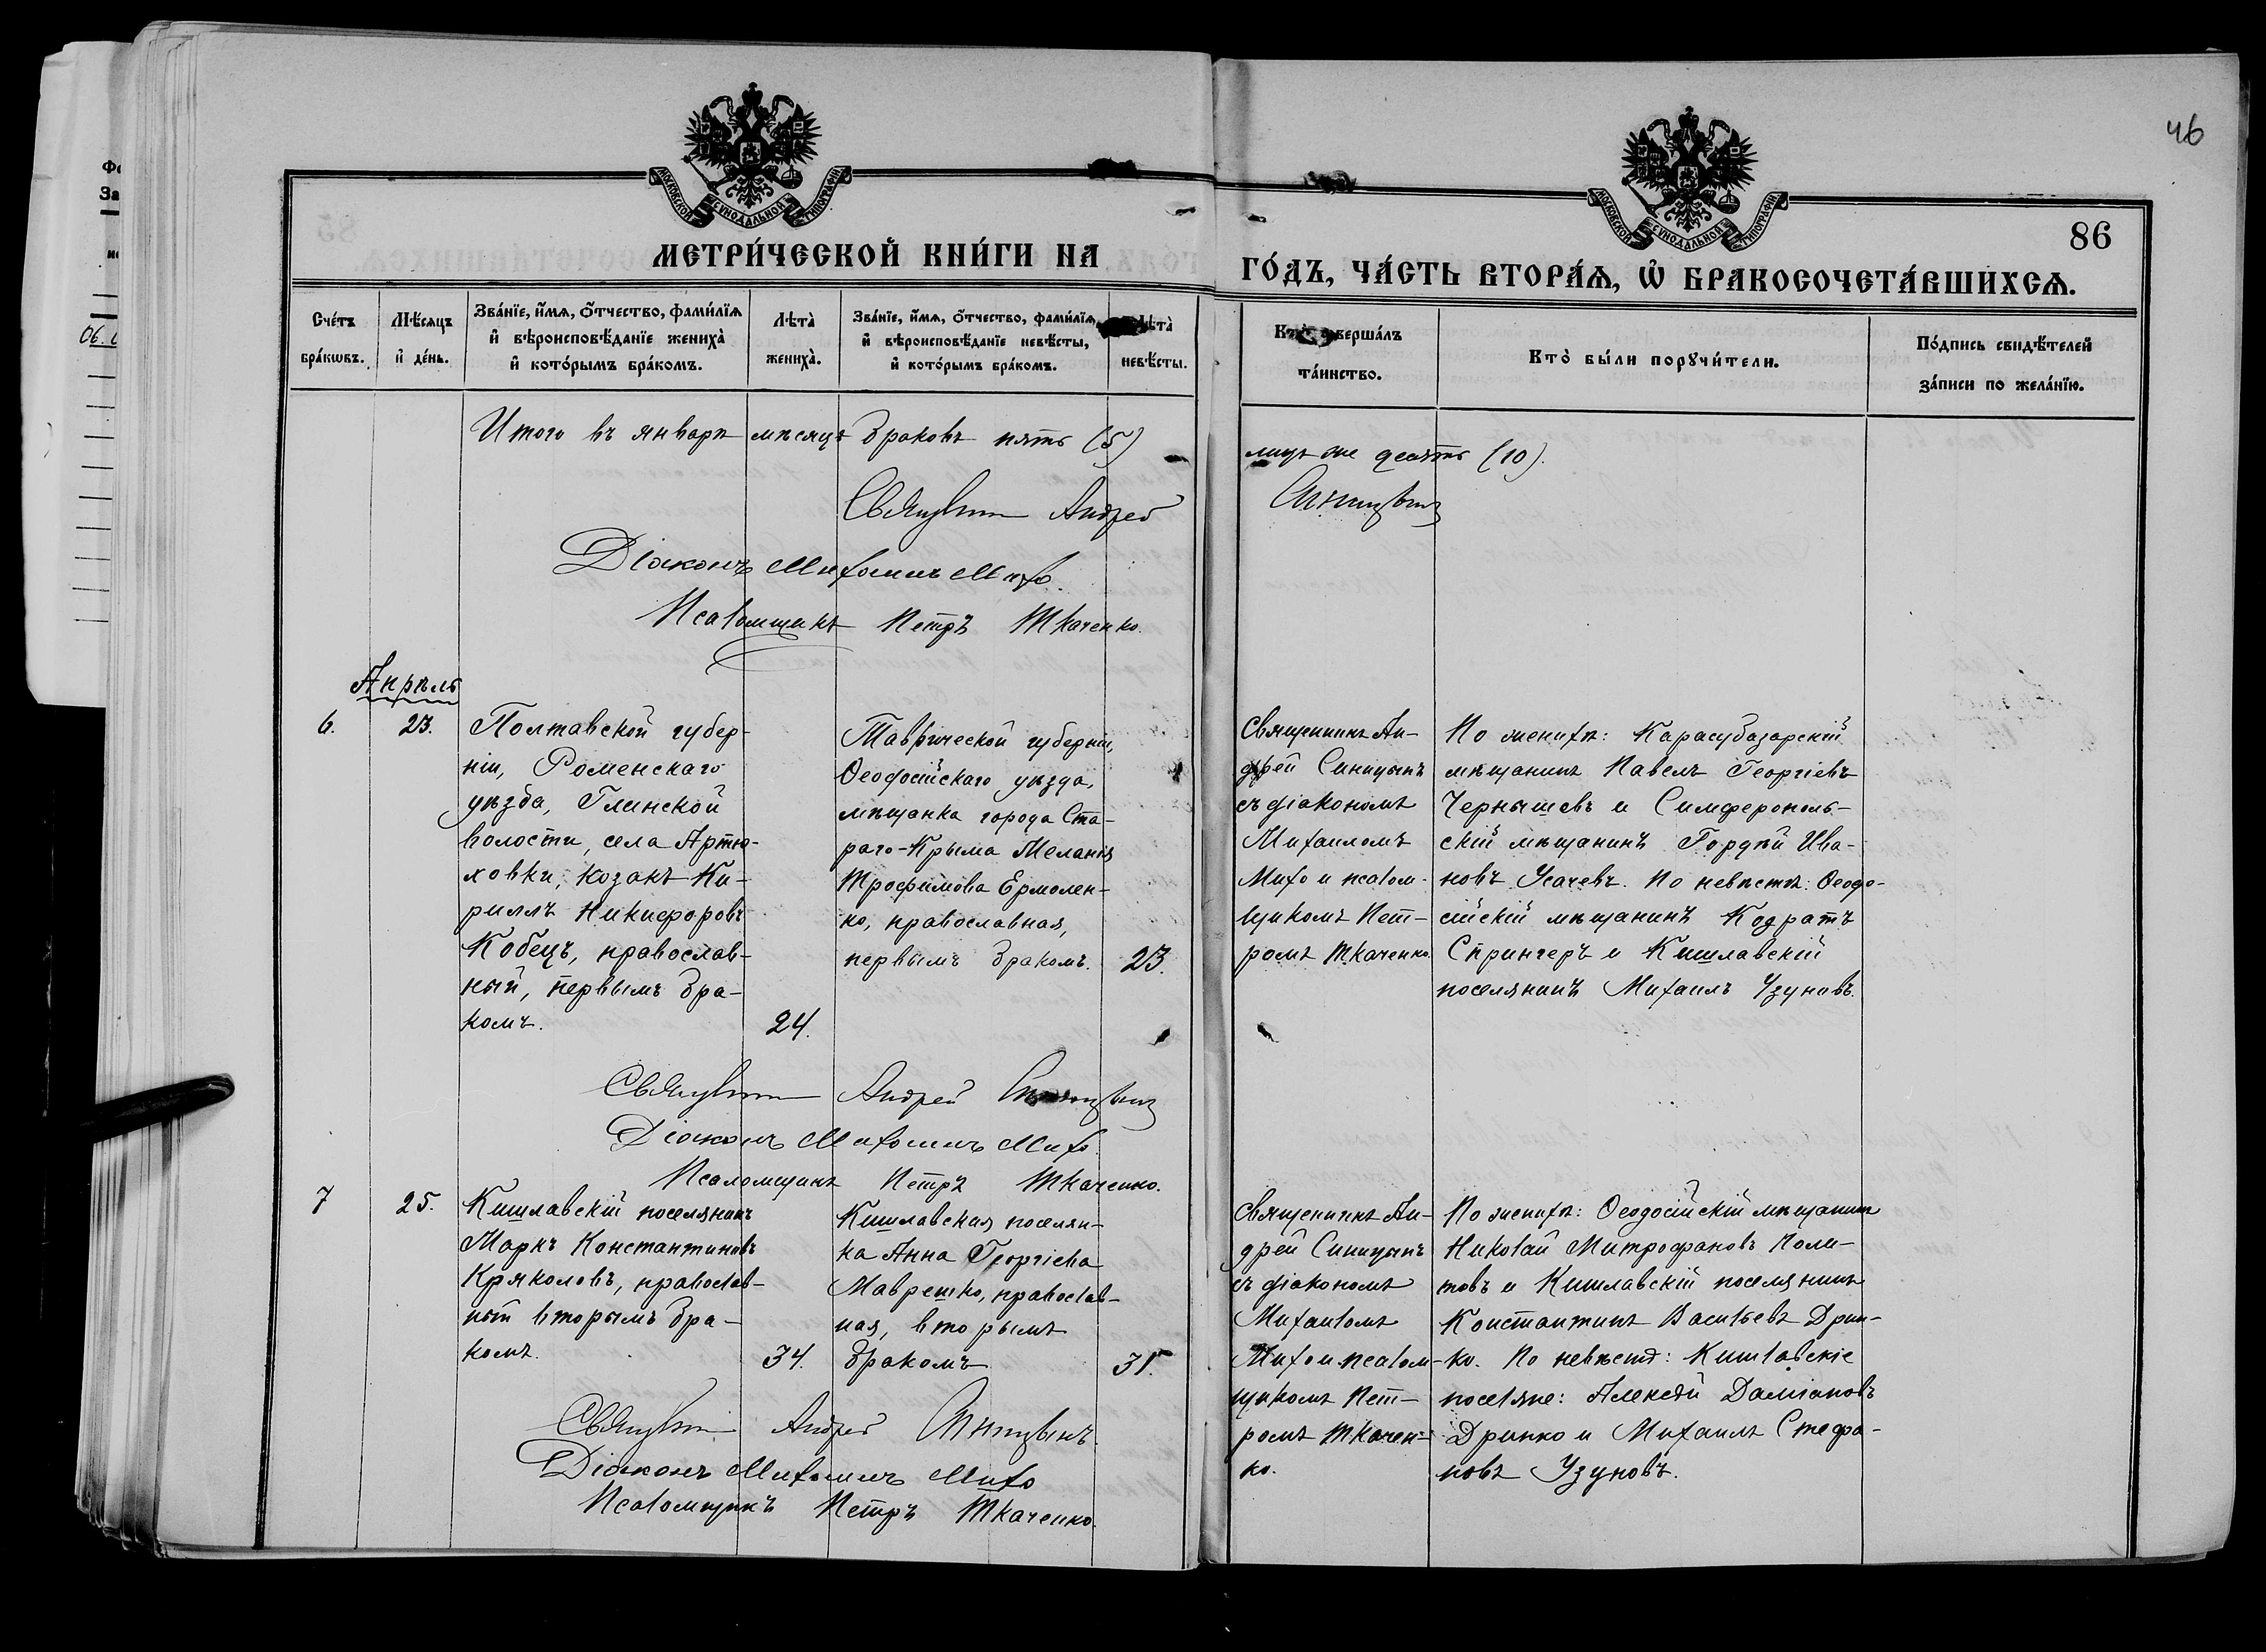 46
МОСКОВСКОЙ СѴНОДАЛЬНОЙ ТИПОГРАФІИ
МОСКОВСКОЙ СѴНОДАЛЬНОЙ ТИПОГРАФІИ
86
МЕТРИ́ЧЕСКОЙ КНИ́ГИ НА
ГО́ДЪ, ЧА́СТЬ ВТОРА́Ѧ, Ѡ БРАКОСОЧЕТА́ВШИХСѦ.
Сче́тъ бра́кѡвъ.
Мѣ́сяцъ и де́нь.
Зва́нїе, и́мя, о́тчество, фами́лїя
и вѣроисповѣ́данїе жениха̀
и кото́рымъ бра́комъ.
Лѣта̀ жениха̀.
Зва́нїе, и́мя, о́тчество, фами́лїя,
и вѣроисповѣ́данїе невѣ́сты,
и кото́рымъ бра́комъ.
Лѣта̀ невѣ́сты.
Кто̀ соверша́лъ
та́инство.
Кто̀ бы́ли порꙋчи́тели.
По́дпись свидѣ́телей
за́писи по жела́нїю.
Итого въ январѣ мѣсяцѣ браковъ пять (5)
лицъ же десять (10).
Священникъ Андрей Синицынъ
Діаконъ Михаилъ Михо.
Псаломщикъ Петръ Ткаченко.
Апрѣль
6.
23.
Полтавской губер-
ніи, Роменскаго
уѣзда, Глинской
волости, села Артю-
ховки, козакъ Ки-
риллъ Никифоровъ
Кобецъ, православ-
ный, первымъ бра-
комъ.
24.
Таврической губерніи,
Ѳеодосійскаго уѣзда,
мѣщанка города Ста-
раго-Крыма Меланія
Трофимова Ермолен-
ко, православная,
первымъ бракомъ.
23.
Священникъ Ан-
дрей Синицынъ
съ діакономъ
Михаиломъ
Михо и псалом-
щикомъ Пет-
ромъ Ткаченко.
По женихѣ: Карасубазарскій
мѣщанинъ Павелъ Георгіевъ
Чернышевъ и Симферополь-
скій мѣщанинъ Гордѣй Ива-
новъ Усачевъ. По невѣстѣ: Ѳеодо-
сійскій мѣщанинъ Кодратъ
Спрингеръ и Кишлавскій
поселянинъ Михаилъ Узуновъ.
Священникъ Андрей Синицынъ
Діаконъ Михаилъ Михо.
Псаломщикъ Петръ Ткаченко.
7
25.
Кишлавскій поселянинъ
Маркъ Константиновъ
Кряколовъ, православ-
ный вторымъ бра-
комъ.
34.
Кишлавская поселян-
ка Анна Георгіева
Маврешко, православ-
ная, вторымъ
бракомъ
31.
Священникъ Ан-
дрей Синицынъ
съ діакономъ
Михаиломъ
Михо и псалом-
щикомъ Пет-
ромъ Ткачен-
ко.
По женихѣ: Ѳеодосійскій мѣщанинъ
Николай Митрофановъ Поли-
товъ и Кишлавскій поселянинъ
Константинъ Васильевъ Дрин-
ко. По невѣстѣ: Кишлавскіе
поселяне: Алексѣй Даміановъ
Дринко и Михаилъ Стефа-
новъ Узуновъ.
Священникъ Андрей Синицынъ.
Діаконъ Михаилъ Михо
Псаломщикъ Петръ Ткаченко.